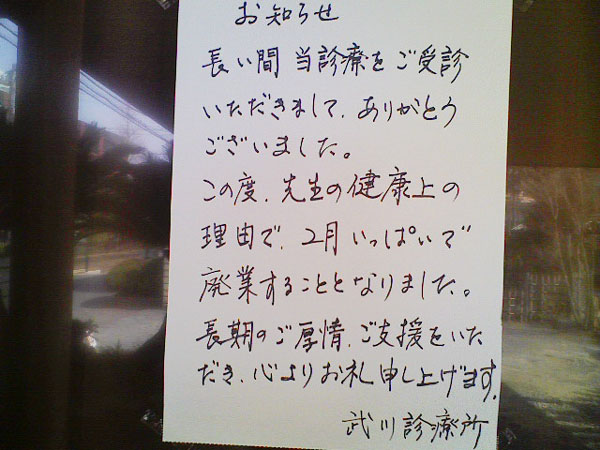 お知らせ
長い間 当診療をご受診
いただきまして、ありがとう
ございました。
この度、先生の健康上の
理由で、2月いっぱいで
廃業することとなりました。
長期のご厚情、ご支援をいた
だき、心よりお礼申し上げます。
武川診療所